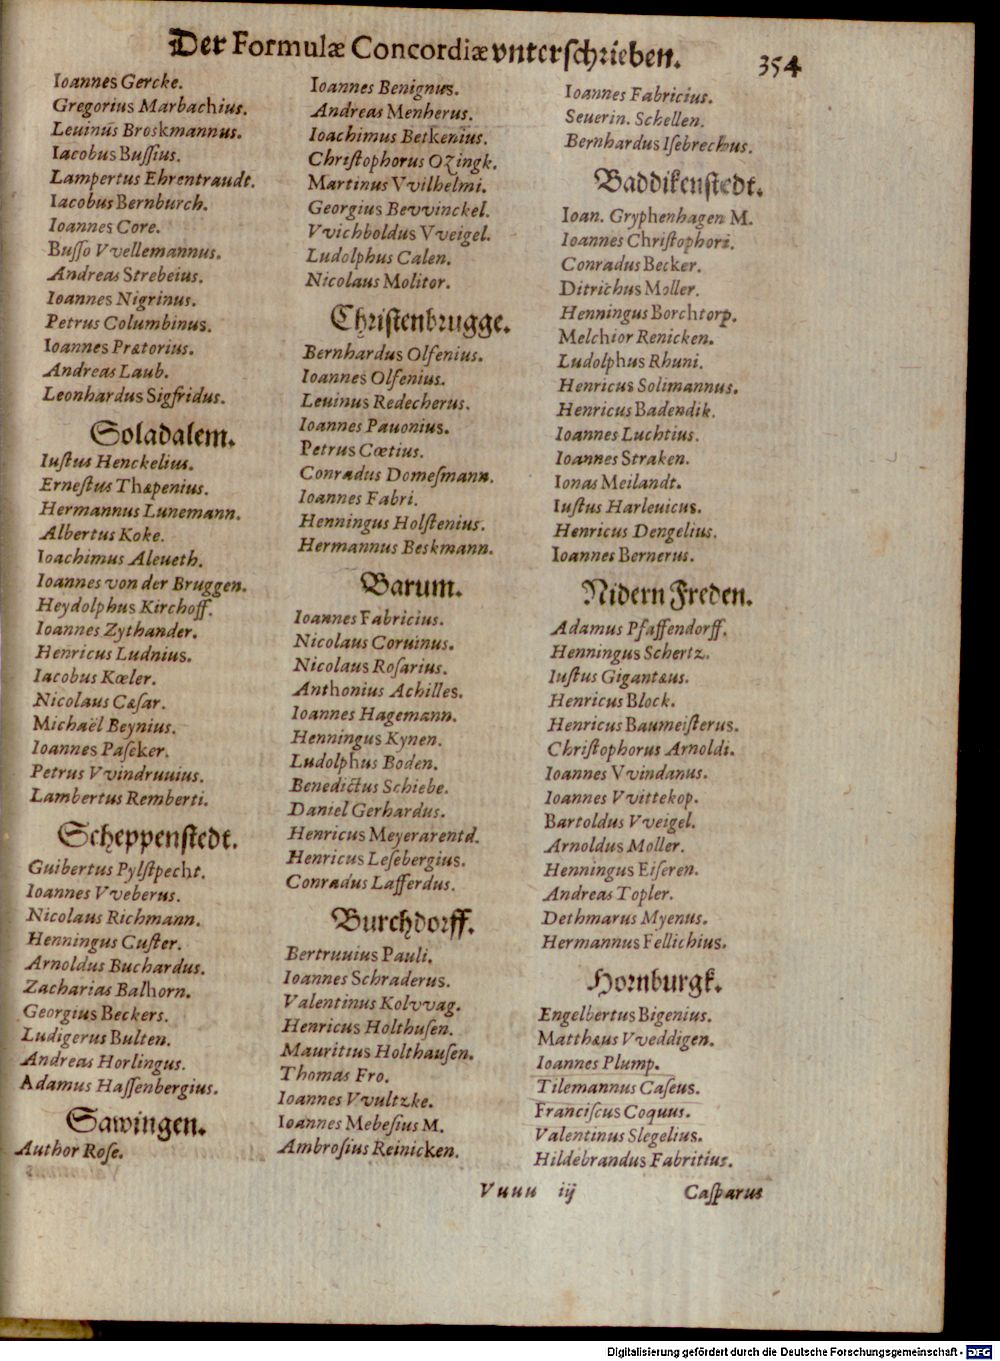 Der Formulæ Concordiæ vnterschrieben. 354
Ioannes Gercke.
Gregorius Marbachius.
Leuinus Broskmannus.
Iacobus Buſſius.
Lampertus Ehrentraudt.
Iacobus Bernburch.
Ioannes Core.
Buſſo Vvellemannus.
Andreas Strebeius.
Ioannes Nigrinus.
Petrus Columbinus.
Ioannes Prætorius.
Andreas Laub.
Leonhardus Sigfridus.
Soladalem.
Iuſtus Henckelius.
Erneſtus Thæpenius.
Hermannus Lunemann.
Albertus Koke.
Ioachimus Aleueth.
Ioannes von der Bruggen.
Heydolphus Kirchoff.
Ioannes Zythander.
Henricus Ludnius.
Iacobus Kœler.
Nicolaus Cæſar.
Michaël Beynius.
Ioannes Paſeker.
Petrus Vvindruuius.
Lambertus Remberti.
Scheppenſtedt.
Guibertus Pylſtpecht.
Ioannes Vveberus.
Nicolaus Richmann.
Henningus Cuſter.
Arnoldus Buchardus.
Zacharias Balhorn.
Georgius Beckers.
Ludigerus Bulten.
Andreas Horlingus.
Adamus Haſſenbergius.
Sawingen.
Author Roſe.
Ioannes Benignus.
Andreas Menherus.
Ioachimus Betkenius.
Chriſtophorus OZingk.
Martinus Vvilhelmi.
Georgius Bevvinckel.
Vvichboldus Vveigel.
Ludolphus Calen.
Nicolaus Molitor.
Chriſtenbrugge.
Bernhardus Olfenius.
Ioannes Olfenius.
Leuinus Redecherus.
Ioannes Pauonius.
Petrus Cœtius.
Conradus Domeſmann.
Ioannes Fabri.
Henningus Holſtenius.
Hermannus Beskmann.
Barum.
Ioannes Fabricius.
Nicolaus Coruinus.
Nicolaus Roſarius.
Anthonius Achilles.
Ioannes Hagemann.
Henningus Kynen.
Ludolphus Boden.
Benedictus Schiebe.
Daniel Gerhardus.
Henricus Meyerarentd.
Henricus Leſebergius.
Conradus Lafferdus.
Burchdorff.
Bertruuius Pauli.
Ioannes Schraderus.
Valentinus Kolvvag.
Henricus Holthuſen.
Mauritius Holthauſen.
Thomas Fro.
Ioannes Vvultzke.
Ioannes Mebeſius M.
Ambroſius Reinicken.
Ioannes Fabricius.
Seuerin. Schellen.
Bernhardus Iſebrechus.
Baddikenſtedt.
Ioan. Gryphenhagen M.
Ioannes Chriſtophori.
Conradus Becker.
Ditrichus Moller.
Henningus Borchtorp.
Melchior Renicken.
Ludolphus Rhuni.
Henricus Solimannus.
Henricus Badendik.
Ioannes Luchtius.
Ioannes Straken.
Ionas Meilandt.
Iuſtus Harleuicus.
Henricus Dengelius.
Ioannes Bernerus.
Nidern Freden.
Adamus Pfaffendorff.
Henningus Schertz.
Iuſtus Gigantæus.
Henricus Block.
Henricus Baumeiſterus.
Chriſtophorus Arnoldi.
Ioannes Vvindanus.
Ioannes Vvittekop.
Bartoldus Vveigel.
Arnoldus Moller.
Henningus Eiſeren.
Andreas Topler.
Dethmarus Myenus.
Hermannus Fellichius.
Hornburgk.
Engelbertus Bigenius.
Matthæus Vveddigen.
Ioannes Plump.
Tilemannus Caſeus.
Franciſcus Coquus.
Valentinus Slegelius.
Hildebrandus Fabritius.
Vuuu iij Caſparus
Digitalisierung gefördert durch die Deutsche Forschungsgemeinschaft - DFG